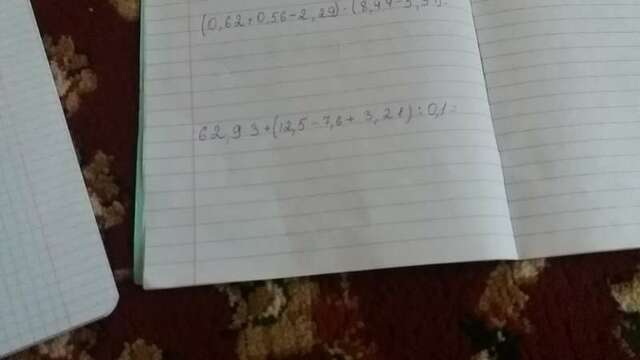 (0,62+0,56-2,29):(8,44-3,
62,93+(12,5-7,6+3,21):0,1=